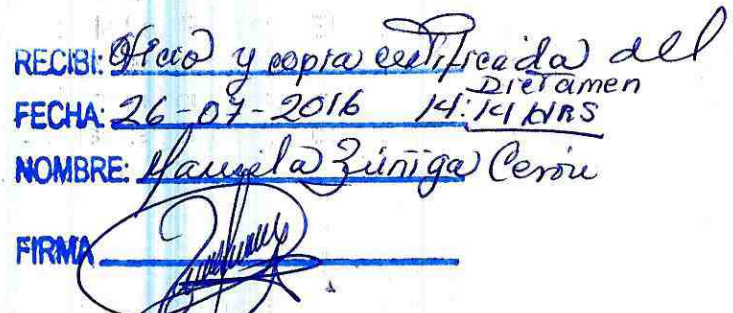 RECIBI: Oficio y copia certificada del
Dictamen
FECHA: 26-07-2016 14:14 HRS
NOMBRE: Zúñiga Cerón
FIRMA